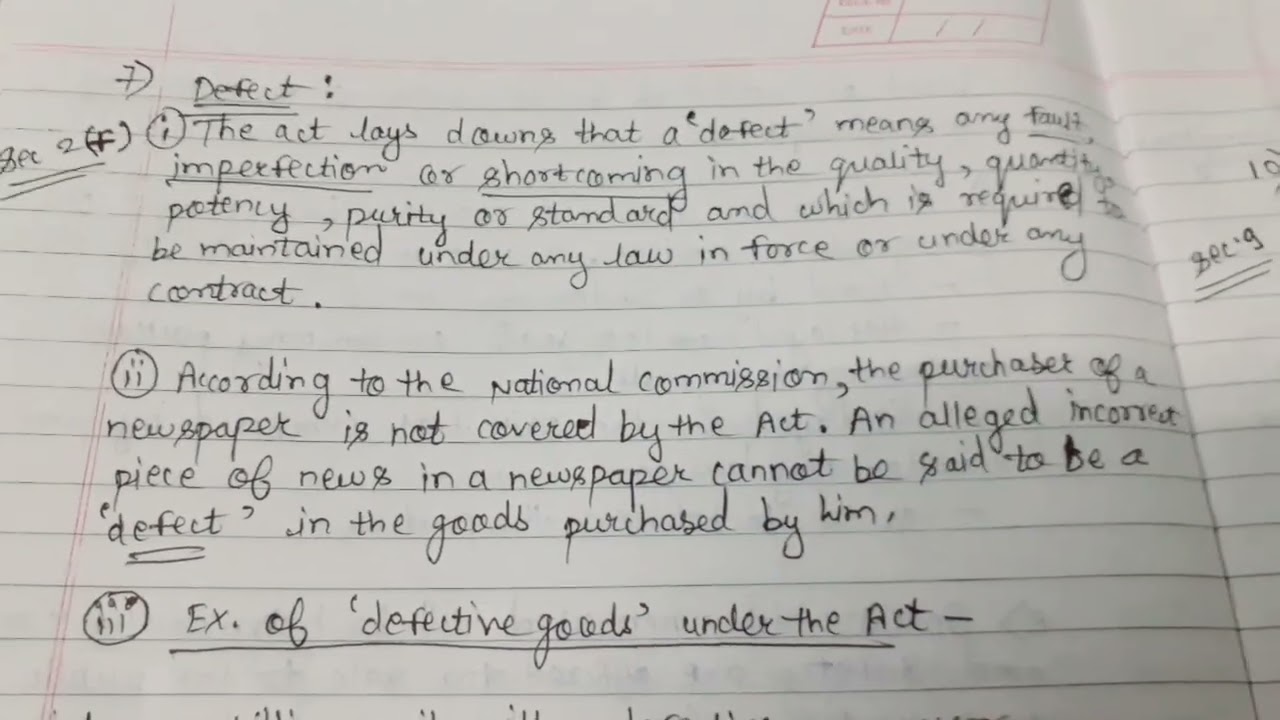 DATE / /
7) Defect :
Sec 2(f) (i) The act lays downs that a 'defect' means any fault,
imperfection or shortcoming in the quality, quantity,
potency, purity or standard and which is required to
be maintained under any law in force or under any
contract.
(ii) According to the National commission, the purchaser of a
newspaper is not covered by the Act. An alleged incorrect
piece of news in a newspaper cannot be said to be a
'defect' in the goods purchased by him.
(iii) Ex. of 'defective goods' under the Act –
10
Sec.9